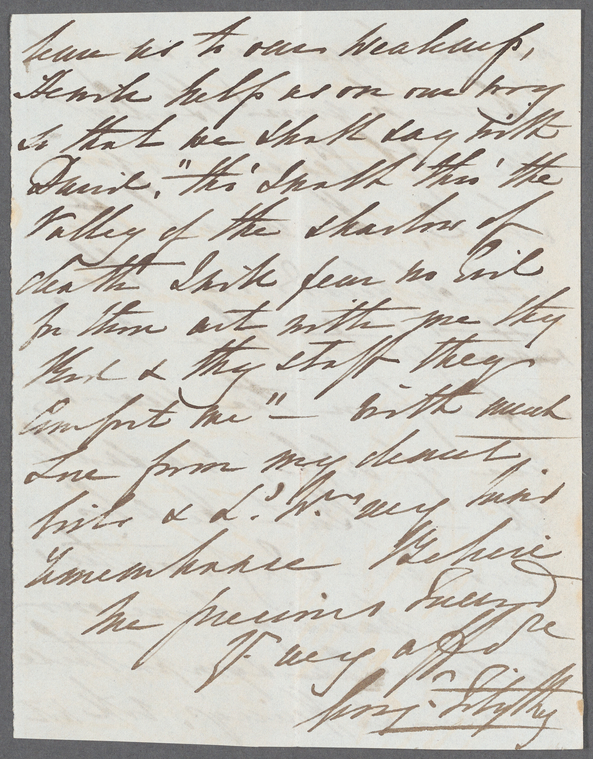 leave us to our weakness,
He will help us on our way
so that we shall say with
David, "tho' I walk thro' the
Valley of the shadow of
death I will fear no Evil
for thou art with me thy
Rod & thy staff they
Comfort me" – With much
Love from my dearest
& Ld. Wms very kind
remembrance Believe
me precious Friend
Yr very affte